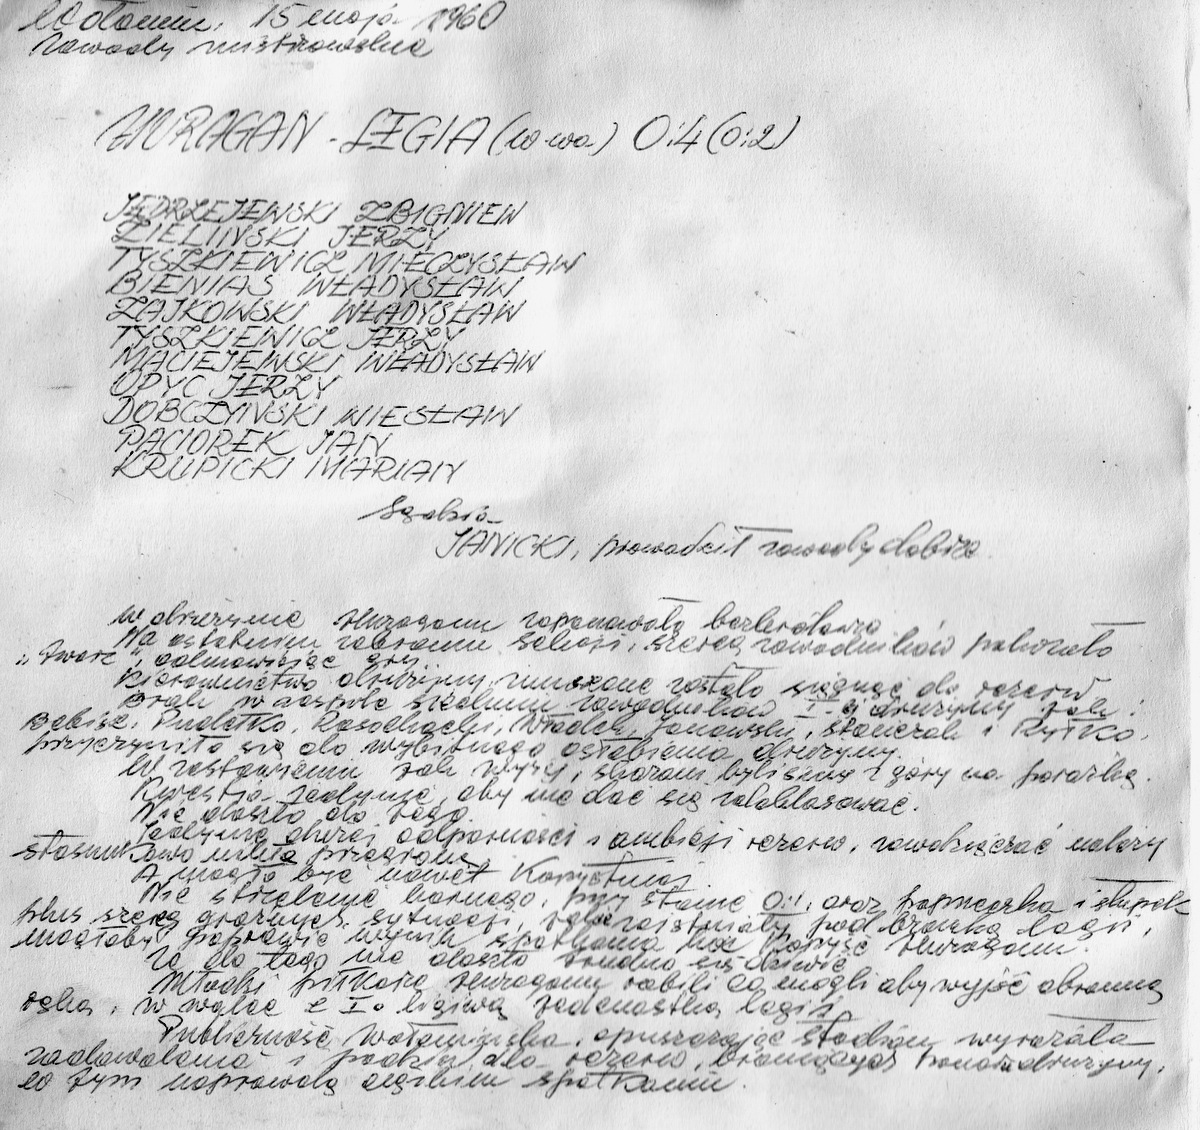 Wołomin, 15 maja 1960
zawody mistrzowskie
HURAGAN - LEGIA (W-wa) 0:4 (0:2)
JĘDRZEJEWSKI ZBIGNIEW
ZIELIŃSKI JERZY
TYSZKIEWICZ MIECZYSŁAW
BIENIAS WŁADYSŁAW
ZAJKOWSKI WŁADYSŁAW
TYSZKIEWICZ JERZY
MACIEJEWSKI WŁADYSŁAW
UPYC JERZY
DOBCZYŃSKI WIESŁAW
PACIOREK JAN
KRUPICKI MARIAN
Sędzia
JANICKI, prowadził zawody dobrze
W drużynie Huraganu zapanowało bezhołowie
Na ostatnim zebraniu sekcji, szereg zawodników pokazało
"twarz", odmawiając gry.
Kierownictwo drużyny zmuszone zostało sięgnąć do rezerw
Brak w zespole siedmiu zawodników I-ej drużyny jak:
Babisz, Pudełko, Rasochacki, Władek Janowski, Stańczak i Rytko,
przyczyniło się do wybitnego osłabienia drużyny.
W zestawieniu jak wyżej, skazani byliśmy z góry na porażkę.
Kwestia jedynie, aby nie dać się zdeklasować.
Nie doszło do tego.
Jedynie dużej odporności i ambicji rezerw, zawdzięczać należy
stosunkowo niską przegraną
A mogło być nawet korzystniej.
Nie strzelenie karnego, przy stanie 0:1, oraz poprzeczka i słupek
plus szereg groźnych sytuacji, jakie zaistniały pod bramką Legii,
mogłoby poprawić wynik spotkania na korzyść Huraganu.
Że do tego nie doszło trudno się dziwić
Młodzi piłkarze Huraganu robili co mogli aby wyjść obronną
ręką, w walce z I-o ligową jedenastką Legii.
Publiczność wołomińska, opuszczając stadion wyrażała
zadowolenie i podziw dla rezerw, broniących honoru drużyny,
w tym naprawdę ciężkim spotkaniu.